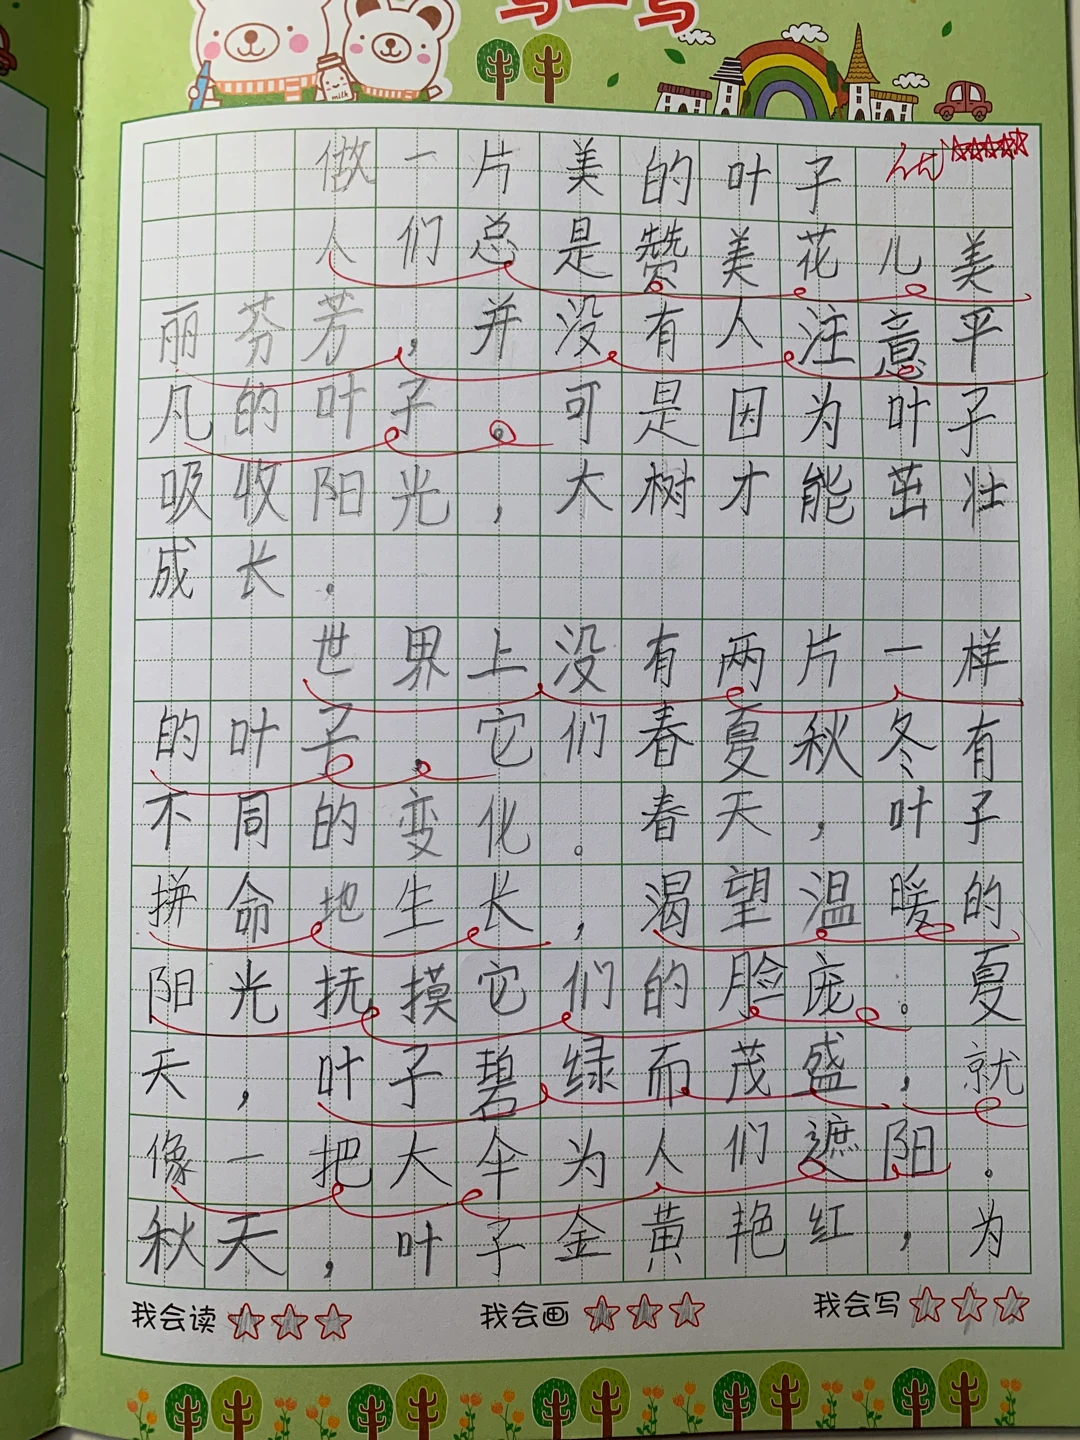 写一写
milk
做一片美的叶子
优
人们总是赞美花儿美
丽芬芳，并没有人注意平
凡的叶子。可是因为叶子
吸收阳光，大树才能茁壮
成长。
世界上没有两片一样
的叶子。它们春夏秋冬有
不同的变化。春天，叶子
拼命地生长，渴望温暖的
阳光抚摸它们的脸庞。夏
天，叶子碧绿而茂盛，就
像一把大伞为人们遮阳。
秋天，叶子金黄艳红，为
我会读 我会画 我会写